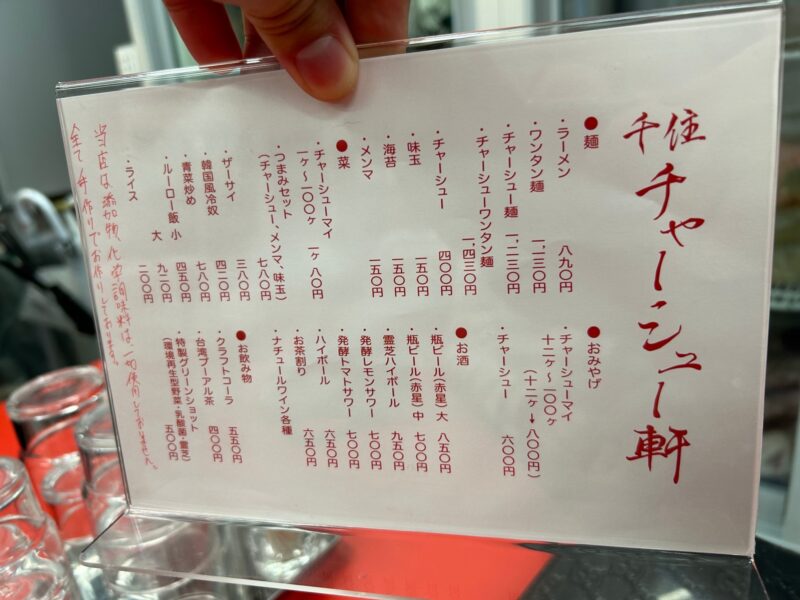 千住チャーシュー軒
●麺
・ラーメン 八九〇円
・ワンタン麺 一、一三〇円
・チャーシュー麺 一、二三〇円
・チャーシューワンタン麺 一、四三〇円
・チャーシュー 四〇〇円
・味玉 一五〇円
・海苔 一五〇円
・メンマ 一五〇円
●菜
・チャーシューマイ 一ヶ 八〇円
一ヶ〜一〇〇ヶ
・つまみセット 七八〇円
(チャーシュー、メンマ、味玉)
・ザーサイ 三八〇円
・韓国風冷奴 四二〇円
・青菜炒め 七八〇円
・ルーロー飯 小 四五〇円
大 九二〇円
・ライス 二〇〇円
●おみやげ
・チャーシューマイ
十二ヶ〜一〇〇ヶ
(十二ヶ→八〇〇円)
・チャーシュー 六〇〇円
●お酒
・瓶ビール(赤星)大 八五〇円
・瓶ビール(赤星)中 七〇〇円
・霊芝ハイボール 九五〇円
・発酵レモンサワー 七〇〇円
・発酵トマトサワー 七〇〇円
・ハイボール 六五〇円
・お茶割り 六五〇円
・ナチュールワイン各種
●お飲み物
・クラフトコーラ 五五〇円
・台湾プーアル茶 四〇〇円
・特製グリーンショット 五〇〇円
(環境再生型野菜・乳酸菌・霊芝)
当店は添加物化学調味料は一切使用しておりません。
全て手作りでお作りしております。